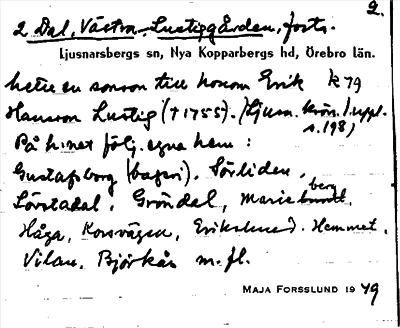 2.
2 Dal, Västra Lustigsgården, forts.
Ljusnarsbergs sn, Nya Kopparbergs hd, Örebro län.
hette en sonson till honom Erik k 79
Hansson Lustig (†1755). (Ljusn. krön. 1. uppl.
s. 198)
På h:net följ. egna hem:
Gustafsborg (bageri). Sörliden,
Sörstadal, Gröndal, Marieberg
Håga, Korsvägen, Erikslund. Hemmet,
Vilan, Björkås m.fl.
MAJA FORSSLUND 1949